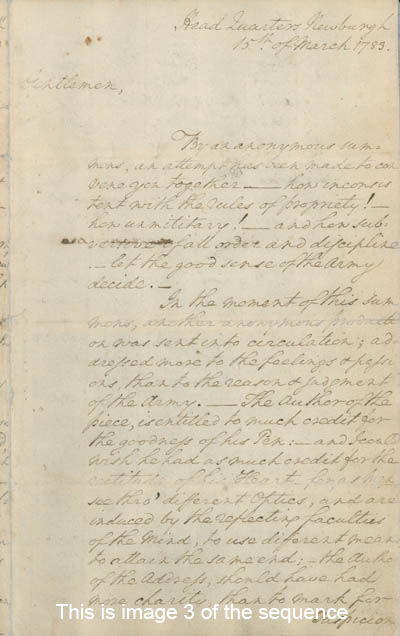 Head Quarters Newburgh
15th of March 1783.
Gentlemen,
By an anonymous sum-
mons, an attempt has been made to con
vene you together — how inconsis
tent with the rules of propriety! —
how unmilitary! — and how sub-
versive of all order and discipline
— let the good sense of the Army
decide. —
In the moment of this Sum
mons, another anonymous producti
on was sent into circulation; ad
dressed more to the feelings & passi
ons, than to the reason & judgment
of the Army. — The Author of the
piece, is entitled to much credit for
the goodness of his Pen: — and I could
wish he had as much credit for the
rectitude of his Heart — for as Men
see thro' different Optics, and are
induced by the reflecting faculties
of the Mind, to use different means
to attain the same end; — the Author
of the Address, should have had
more charity, than to mark for
Suspicion
This is image 3 of the sequence